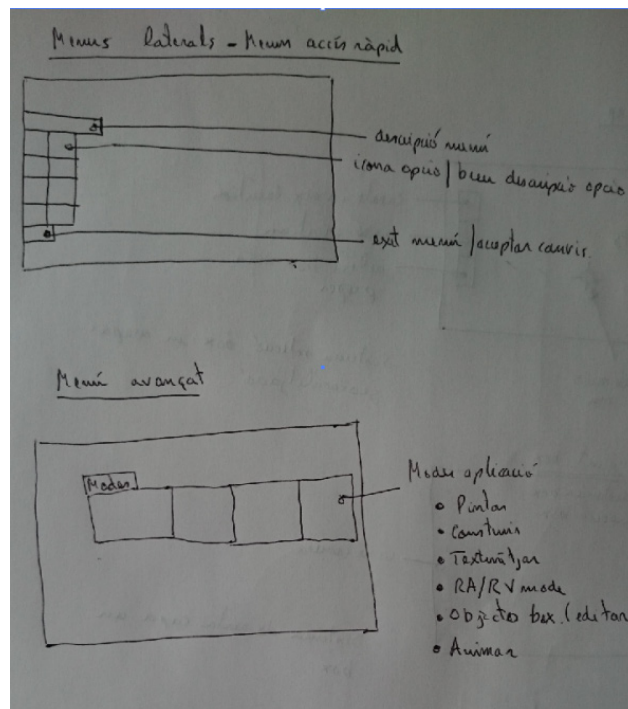 Menus laterals - Menu accés ràpid
descripció menú
icona opció / breu descripció opció
exit menú / aceptar canvis.
Menú avançat
Modes
Modes aplicació
• Pintar
• Construir
• Texturitzar
• RA/RV mode
• Objectes box. (editar
• Animar